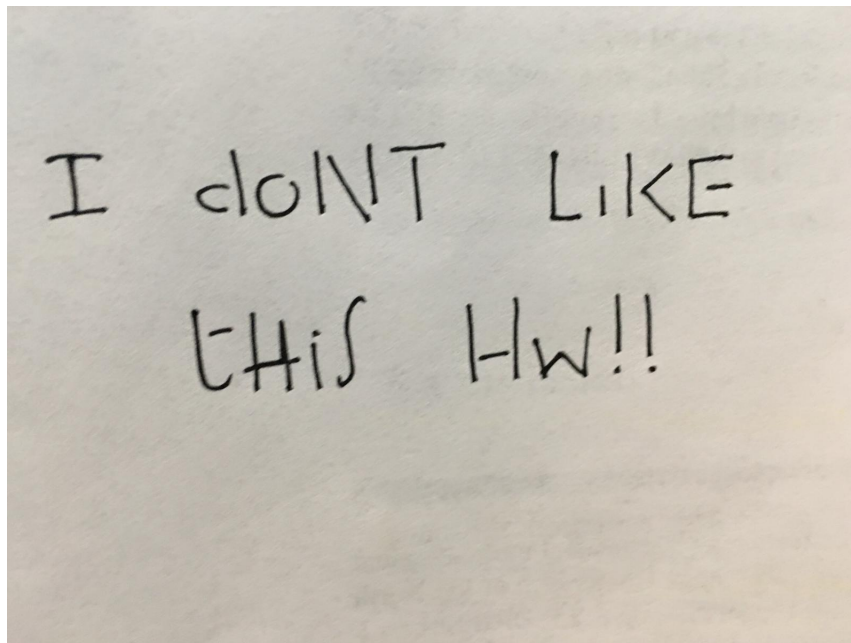 I doNT LiKE
tHiS HW!!